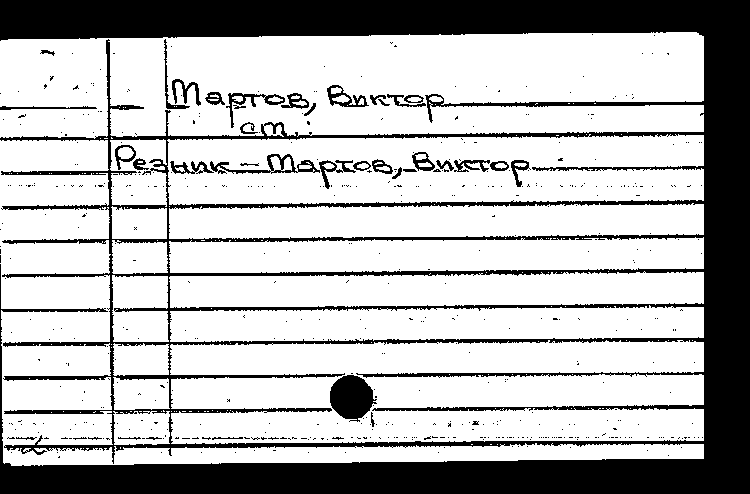 Мартов, Виктор
ст.:
Резник – Мартов, Виктор